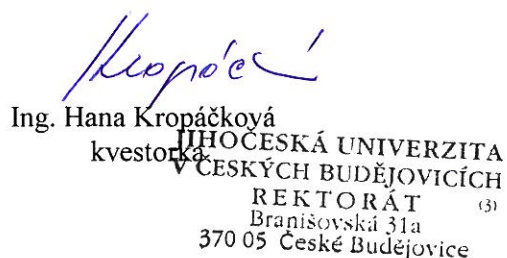 Kropáč
Ing. Hana Kropáčková
kvestorka
JIHOČESKÁ UNIVERZITA
V ČESKÝCH BUDĚJOVICÍCH
REKTORÁT (3)
Branišovská 31a
370 05 České Budějovice